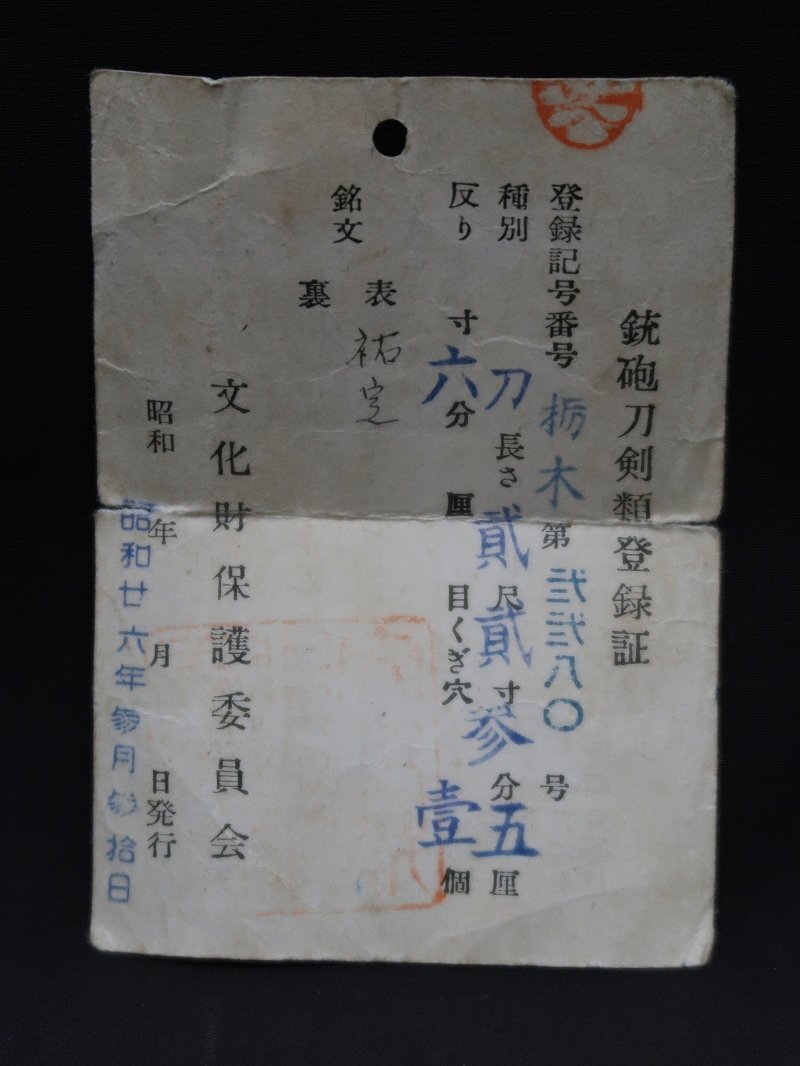 銃砲刀剣類登録証
登録記号番号 栃木 第 弐弐八〇 号
種別 刀 長さ 貳 尺 貳 寸 参 分 五 厘
反り 寸 六 分 厘 目くぎ穴 壹 個
銘文
表 祐定
裏
文化財保護委員会
昭和 年 月 日発行
昭和廿六年参月参拾日